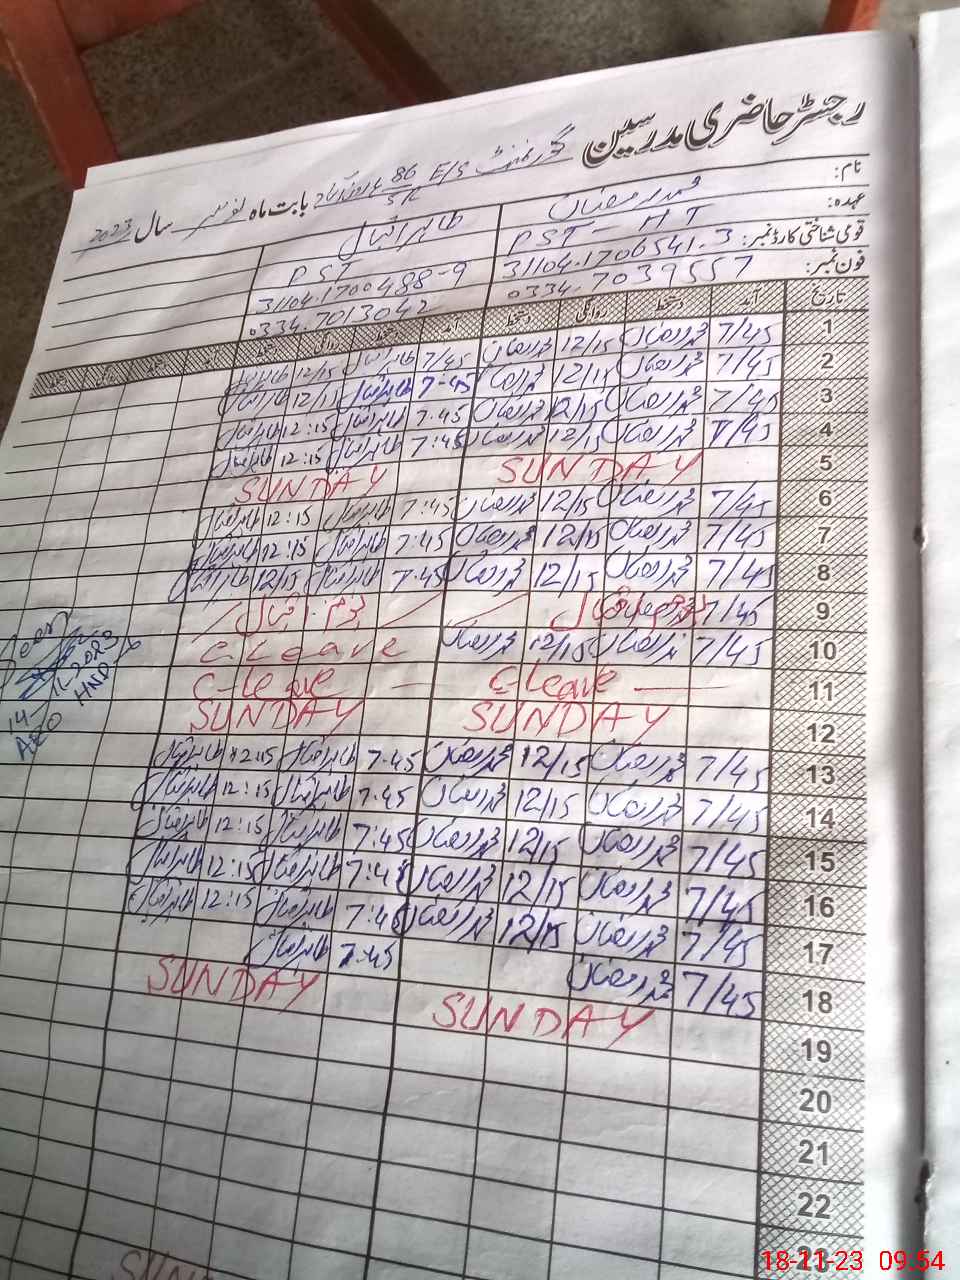 رجسٹر حاضری مدرسین
گورنمنٹ E/S 86 بابت ماہ نومبر سال 2023
5R
نام: محمد رمضان طاہر اقبال
عہدہ: PST - HT PST
قومی شناختی کارڈ نمبر: 31104.1706541.3 31104.1700488-9
فون نمبر: 0334.7039557 0334.7013042
تاریخ آمد دستخط روانگی دستخط آمد دستخط روانگی دستخط آمد دستخط روانگی دستخط
1 7/45 محمد رمضان 12/15 محمد رمضان 7/45 طاہر اقبال 12/15 طاہر اقبال
2 7/45 محمد رمضان 12/15 محمد رمضان 7-45 طاہر اقبال 12/15 طاہر اقبال
3 7/45 محمد رمضان 12/15 محمد رمضان 7.45 طاہر اقبال 12:15 طاہر اقبال
4 7/45 محمد رمضان 12/15 محمد رمضان 7:45 طاہر اقبال 12:15 طاہر اقبال
5 SUNDAY SUNDAY
6 7/45 محمد رمضان 12/15 محمد رمضان 7:45 طاہر اقبال 12:15 طاہر اقبال
7 7/45 محمد رمضان 12/15 محمد رمضان 7:45 طاہر اقبال 12:15 طاہر اقبال
8 7/45 محمد رمضان 12/15 محمد رمضان 7.45 طاہر اقبال 12/15 طاہر اقبال
9 7/45 یوم اقبال
10 7/45 محمد رمضان 12/15 محمد رمضان C Leave
11 C-Leave C-Leave
12 SUNDAY SUNDAY
13 7/45 محمد رمضان 12/15 محمد رمضان 7.45 طاہر اقبال 12:15 طاہر اقبال
14 7/45 محمد رمضان 12/15 محمد رمضان 7.45 طاہر اقبال 12:15 طاہر اقبال
15 7/45 محمد رمضان 12/15 محمد رمضان 7:45 طاہر اقبال 12:15 طاہر اقبال
16 7/45 محمد رمضان 12/15 محمد رمضان 7:45 طاہر اقبال 12:15 طاہر اقبال
17 7/45 محمد رمضان 12/15 محمد رمضان 7:45 طاہر اقبال 12:15 طاہر اقبال
18 7/45 محمد رمضان 7:45 طاہر اقبال
19 SUNDAY SUNDAY
20
21
22
23
Seen
14-11-2023
AEO HND
SUN
18-11-23 09:54